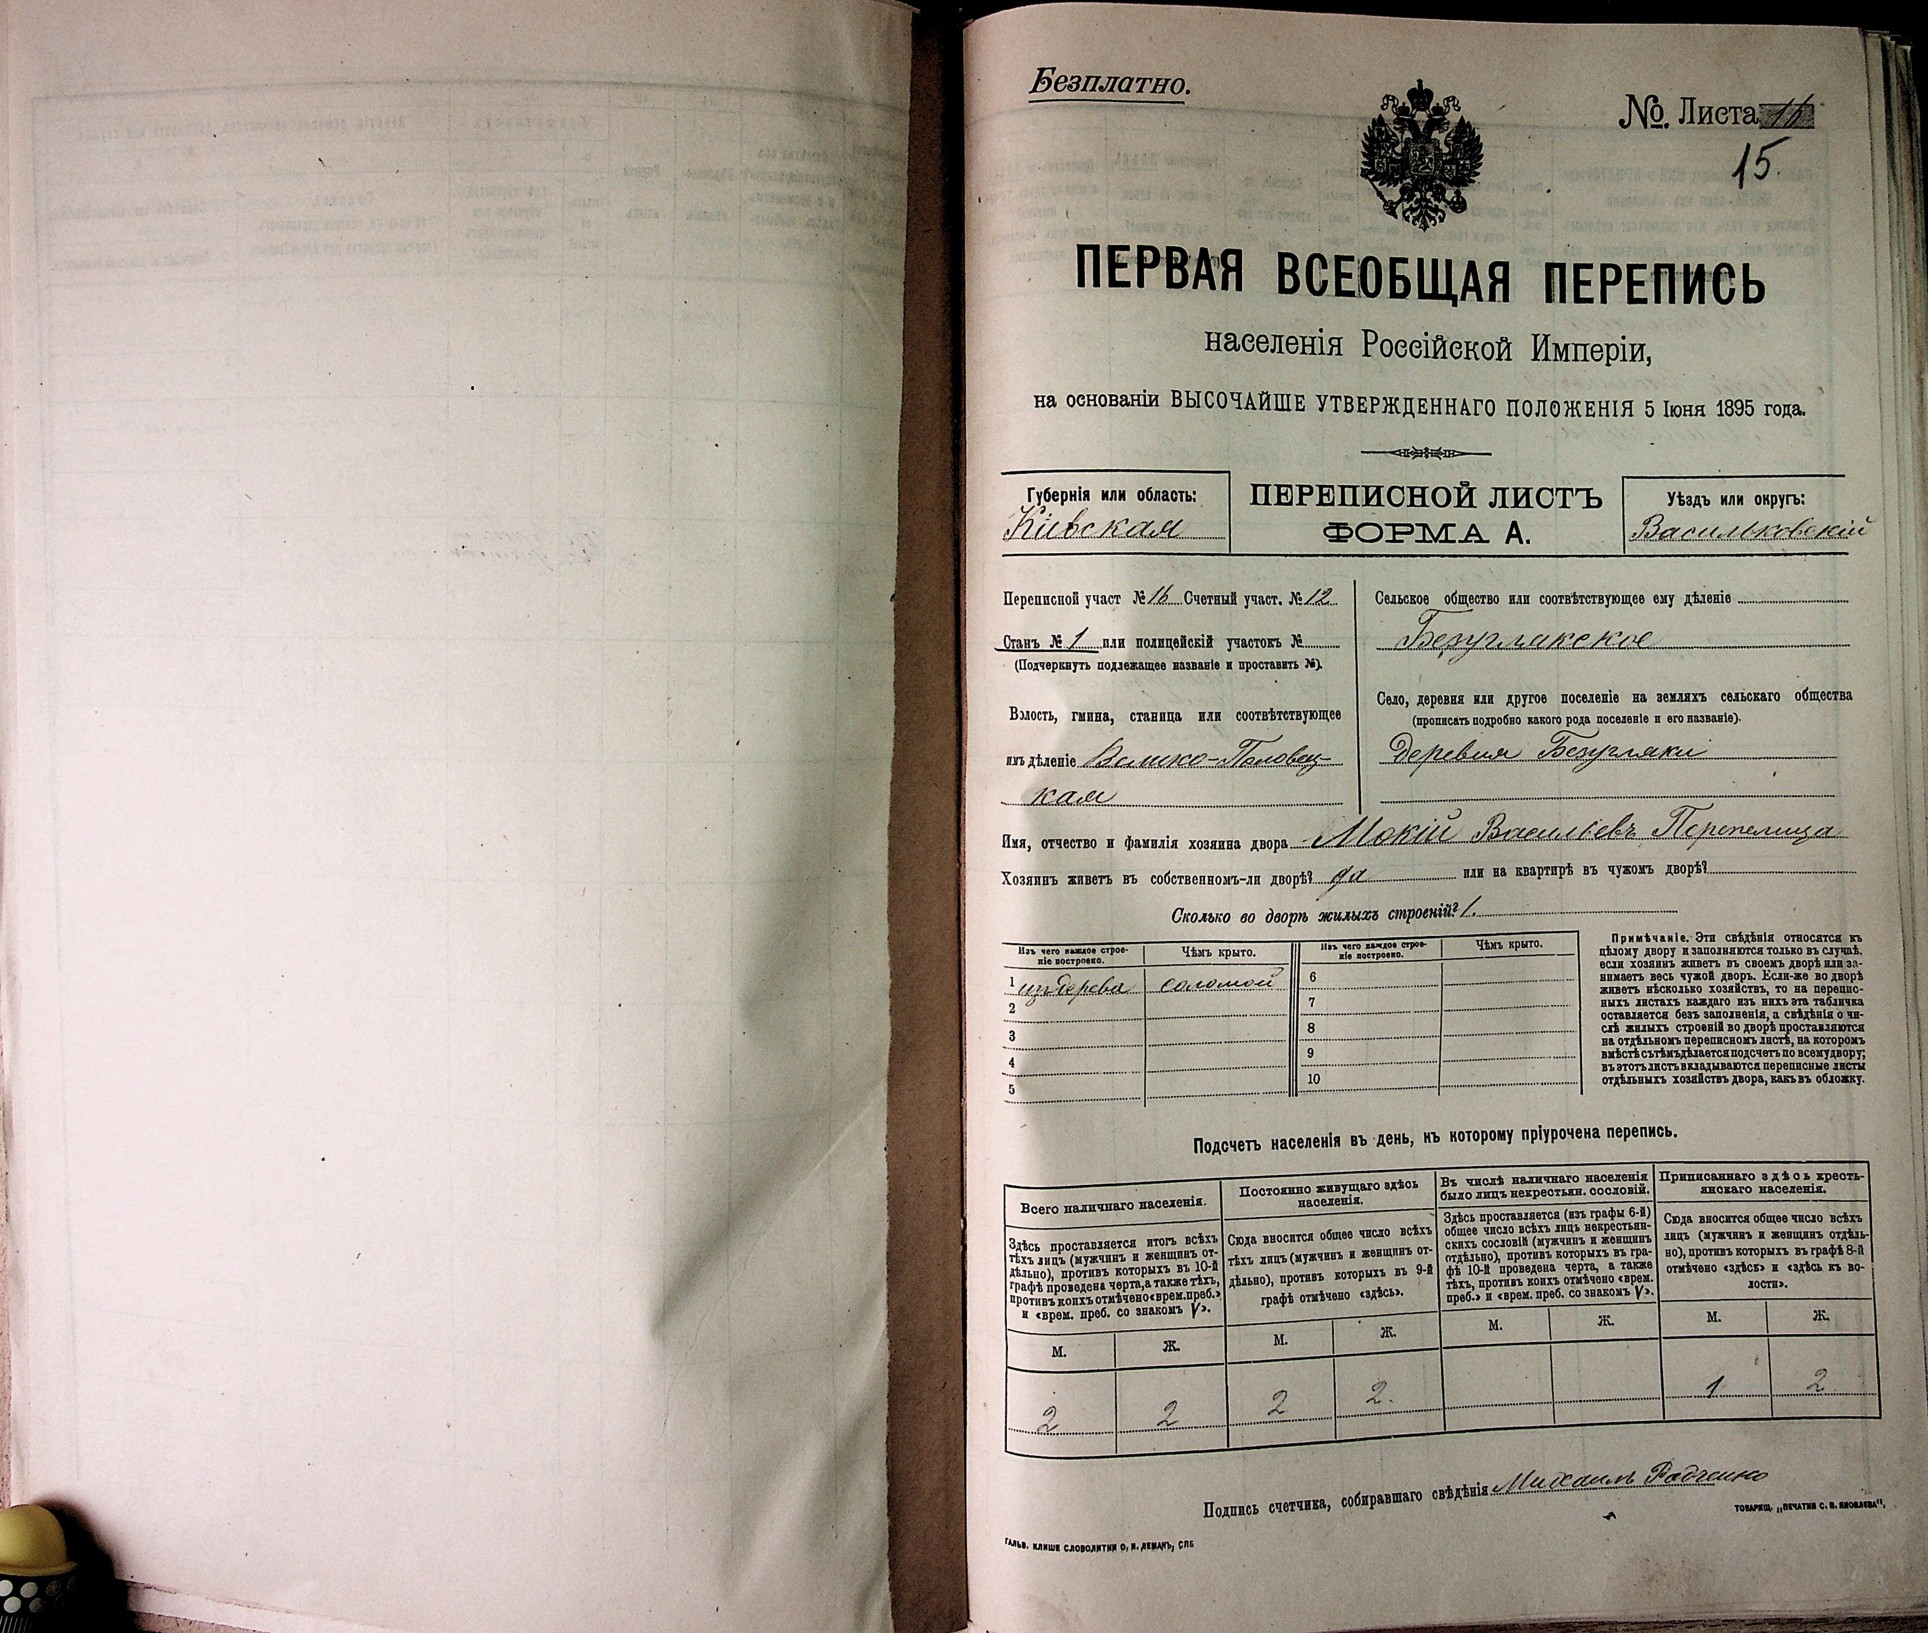 Безплатно.
№. Листа 16
15.
ПЕРВАЯ ВСЕОБЩАЯ ПЕРЕПИСЬ
населенія Россійской Имперіи,
на основаніи ВЫСОЧАЙШЕ УТВЕРЖДЕННАГО ПОЛОЖЕНІЯ 5 Іюня 1895 года.
Губернія или область:
Кіевская
ПЕРЕПИСНОЙ ЛИСТЪ
ФОРМА А.
Уѣздъ или округъ:
Васильковскій
Переписной участ № 16 Счетный участ. № 12
Станъ № 1 или полицейскій участокъ №
(Подчеркнуть подлежащее названіе и проставить №).
Волость, гмина, станица или соотвѣтствующее
имъ дѣленіе Велико-Половец-
кая
Сельское общество или соотвѣтствующее ему дѣленіе
Безуглякское
Село, деревня или другое поселеніе на земляхъ сельскаго общества
(прописать подробно какого рода поселеніе и его названіе).
деревня Безугляки
Имя, отчество и фамилія хозяина двора Мокій Васильевъ Перепелица
Хозяинъ живетъ въ собственномъ-ли дворѣ? да или на квартирѣ въ чужомъ дворѣ?
Сколько во дворѣ жилыхъ строеній? 1.
Изъ чего каждое строе-
ніе построено.
Чѣмъ крыто.
Изъ чего каждое строе-
ніе построено.
Чѣмъ крыто.
1 изъ дерева соломой 6
2 7
3 8
4 9
5 10
Примѣчаніе. Эти свѣдѣнія относятся къ
цѣлому двору и заполняются только въ случаѣ,
если хозяинъ живетъ въ своемъ дворѣ или за-
нимаетъ весь чужой дворъ. Если-же во дворѣ
живетъ нѣсколько хозяйствъ, то на перепис-
ныхъ листахъ каждаго изъ нихъ эта табличка
оставляется безъ заполненія, а свѣдѣнія о чи-
слѣ жилыхъ строеній во дворѣ проставляются
на отдѣльномъ переписномъ листѣ, на которомъ
вмѣстѣ съ тѣмъ дѣлается подсчетъ по всему двору;
въ этотъ листъ вкладываются переписные листы
отдѣльныхъ хозяйствъ двора, какъ въ обложку.
Подсчетъ населенія въ день, къ которому пріурочена перепись.
Всего наличнаго населенія.
Здѣсь проставляется итогъ всѣхъ
тѣхъ лицъ (мужчинъ и женщинъ от-
дѣльно), противъ которыхъ въ 10-й
графѣ проведена черта, а также тѣхъ,
противъ коихъ отмѣчено «врем. преб.»
и «врем. преб. со знакомъ V».
Постоянно живущаго здѣсь
населенія.
Сюда вносится общее число всѣхъ
тѣхъ лицъ (мужчинъ и женщинъ от-
дѣльно), противъ которыхъ въ 9-й
графѣ отмѣчено «здѣсь».
Въ числѣ наличнаго населенія
было лицъ некрестьян. сословій.
Здѣсь проставляется (изъ графы 6-й)
общее число всѣхъ лицъ некрестьян-
скихъ сословій (мужчинъ и женщинъ
отдѣльно), противъ которыхъ въ гра-
фѣ 10-й проведена черта, а также
тѣхъ, противъ коихъ отмѣчено «врем.
преб.» и «врем. преб. со знакомъ V».
Приписаннаго здѣсь кресть-
янскаго населенія.
Сюда вносится общее число всѣхъ
лицъ (мужчинъ и женщинъ отдѣль-
но), противъ которыхъ въ графѣ 8-й
отмѣчено «здѣсь» и «здѣсь къ во-
лости».
М. Ж. М. Ж. М. Ж. М. Ж.
2 2 2 2. 1 2
Подпись счетчика, собиравшаго свѣдѣнія Михаилъ Радченко
ТОВАРИЩ. „ПЕЧАТНИ С. П. ЯКОВЛЕВА“.
ГАЛЬВ. КЛИШЕ СЛОВОЛИТНИ О. И. ЛЕМАНЪ, СПБ